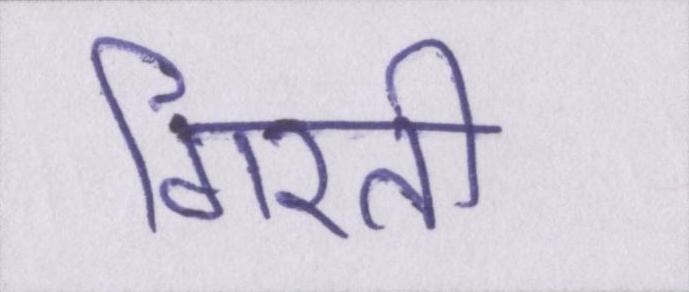 गिरती